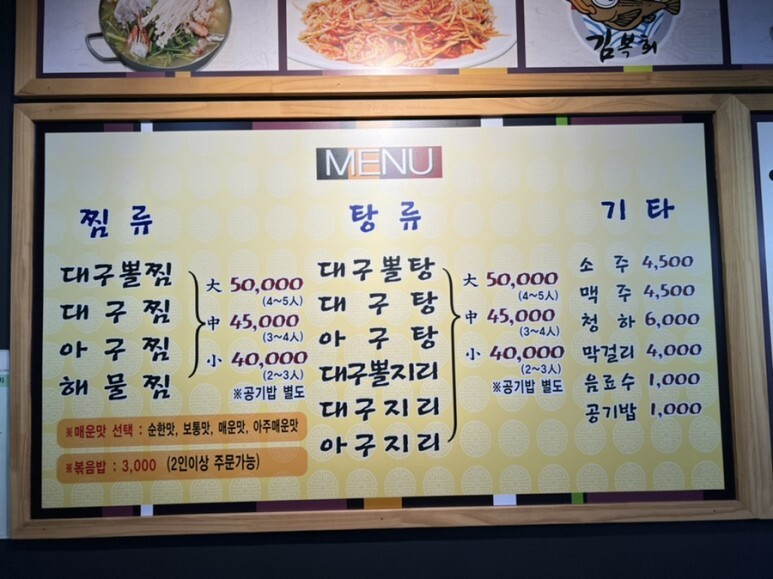 김복희
MENU
찜 류
대구뽈찜
대 구 찜
아 구 찜
해 물 찜
大 50,000
(4~5人)
中 45,000
(3~4人)
小 40,000
(2~3人)
※공기밥 별도
※매운맛 선택 : 순한맛, 보통맛, 매운맛, 아주매운맛
※볶음밥 : 3,000 (2인이상 주문가능)
탕 류
대구뽈탕
대 구 탕
아 구 탕
대구뽈지리
대구지리
아구지리
大 50,000
(4~5人)
中 45,000
(3~4人)
小 40,000
(2~3人)
※공기밥 별도
기 타
소 주 4,500
맥 주 4,500
청 하 6,000
막걸리 4,000
음료수 1,000
공기밥 1,000